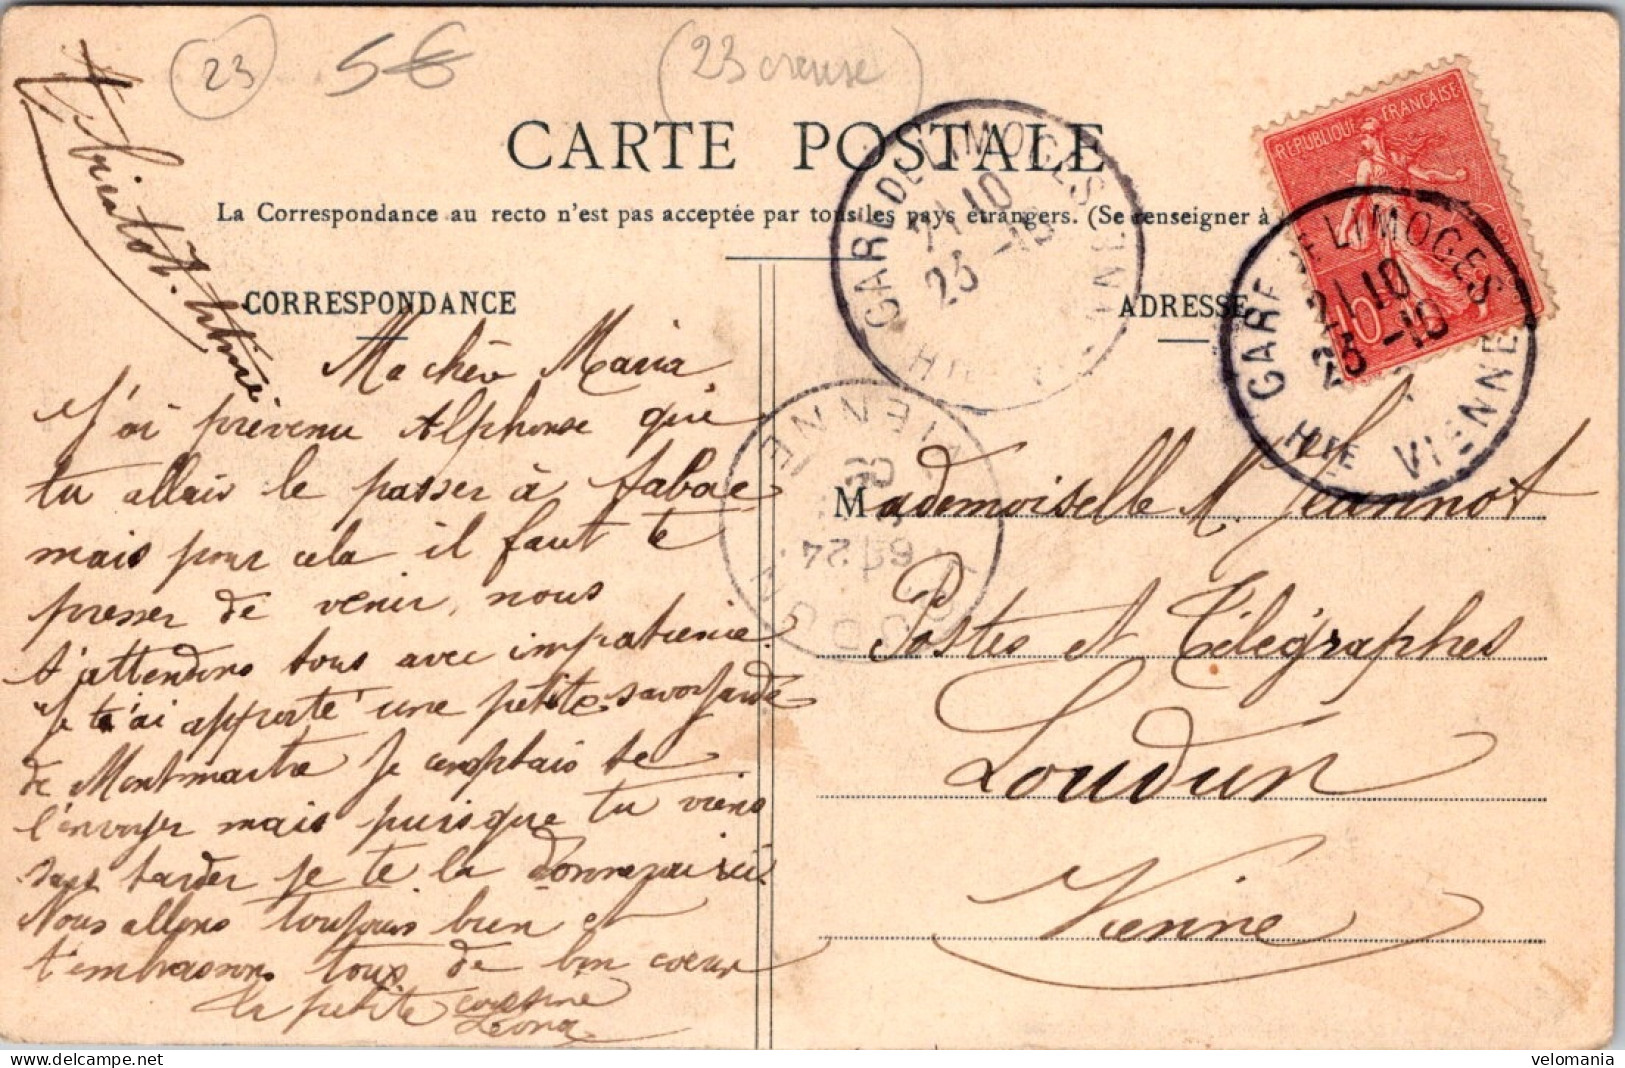 23
5€
(23 creuse)
CARTE POSTALE
La Correspondance au recto n'est pas acceptée par tous les pays étrangers. (Se renseigner à
REPUBLIQUE FRANÇAISE
10
GARE DE LIMOGES
21 10
25 -10
HTE VIENNE
GARE DE LIMOGES
21 10
25 -10
HTE VIENNE
LOUDUN
VIENNE
CORRESPONDANCE
ADRESSE
à bientôt
Ma chère Maria,
J'ai prévenu Alphonse que
tu allais le passer à tabac
mais pour cela il faut te
presser de venir, nous
t'attendons tous avec impatience
Je t'ai apporté une petite savoyarde
de Montmartre je comptais te
l'envoyer mais puisque tu viens
sans tarder je te la donnerai ici.
Nous allons toujours bien et
t'embrassons tous de bon cœur
la petite cousine
Léona
Mademoiselle M. Jeannot
Postes et Télégraphes
Loudun
Vienne
velomania